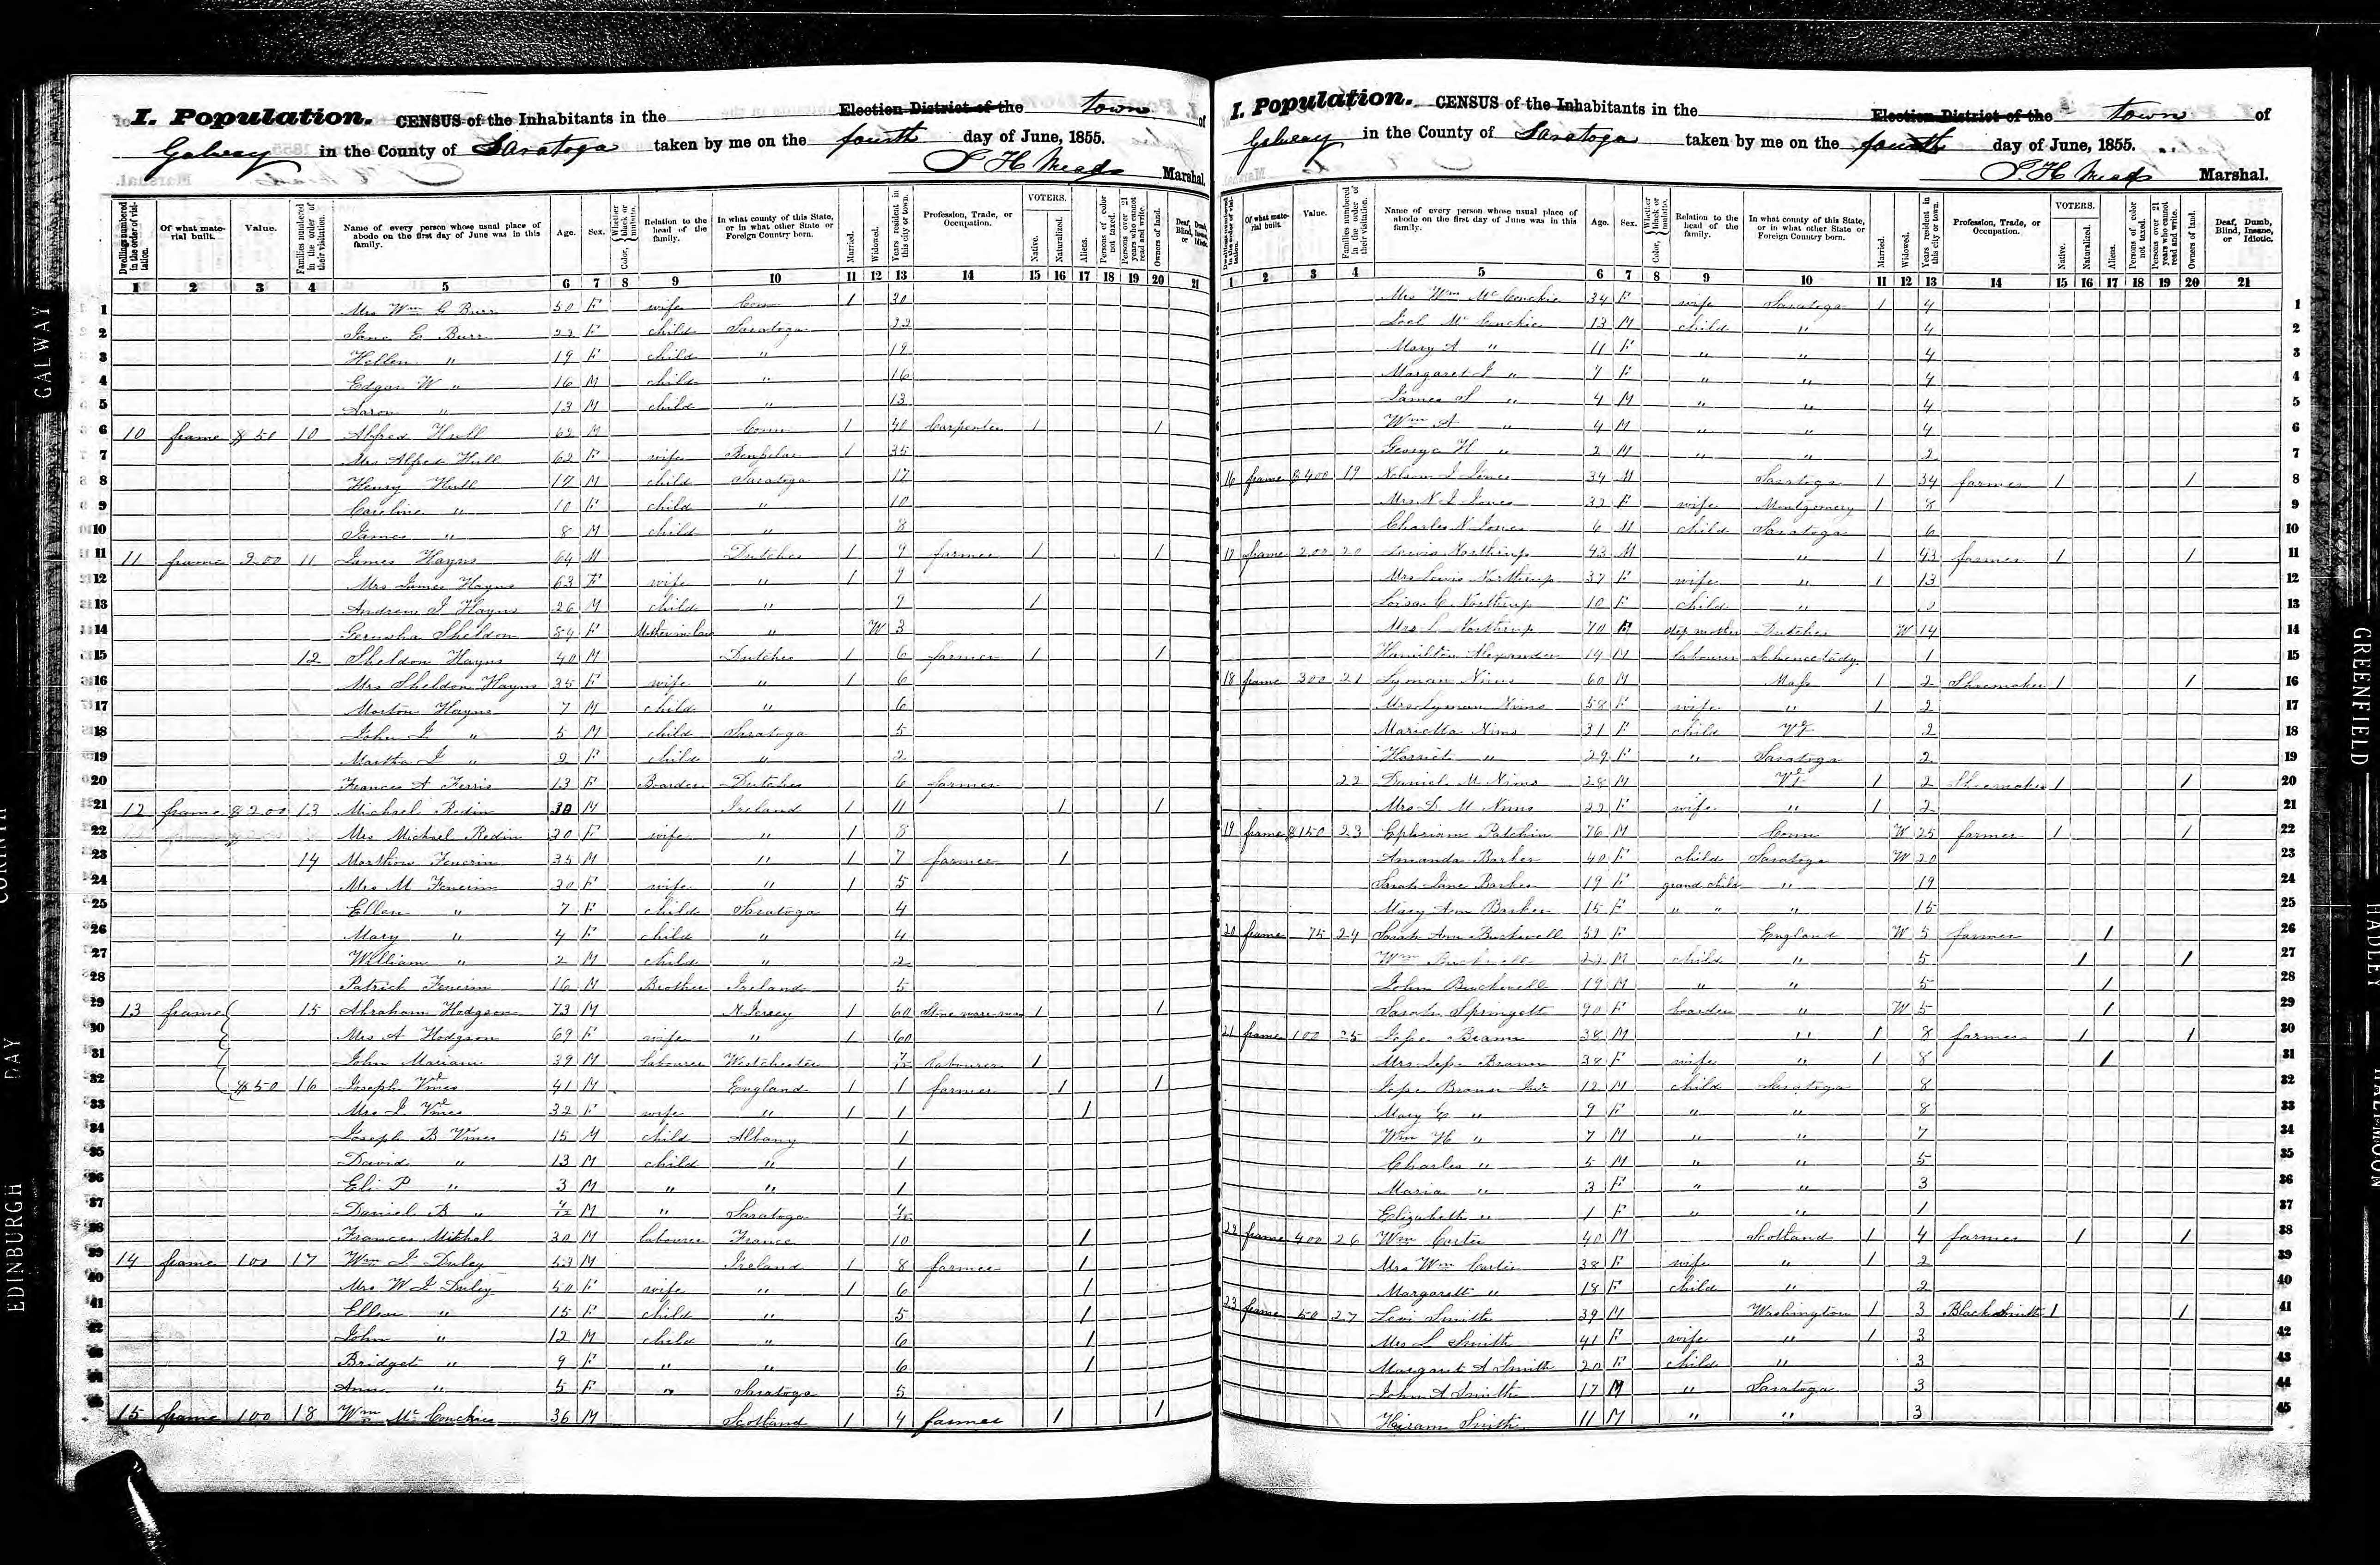 I. Population. CENSUS of the Inhabitants in the Election District of the town of
Galway in the County of Saratoga taken by me on the fourth day of June, 1855.
S H Mead Marshal.
Dwellings numbered in the order of visitation.
Of what material built.
Value.
Families numbered in the order of their visitation.
Name of every person whose usual place of abode on the first day of June was in this family.
Age.
Sex.
Color, { Whether black or mulatto.
Relation to the head of the family.
In what county of this State, or in what other State or Foreign Country born.
Married.
Widowed.
Years resident in this city or town.
Profession, Trade, or Occupation.
VOTERS.
Native.
Naturalized.
Aliens.
Persons of color not taxed.
Persons over 21 years who cannot read and write.
Owners of land.
Deaf, Dumb, Blind, Insane, or Idiotic.
1 2 3 4 5 6 7 8 9 10 11 12 13 14 15 16 17 18 19 20 21
1 Mrs Wm G Burr 50 F wife Conn 1 30
2 Jane E Burr 22 F child Saratoga 22
3 Hellen " 19 F child " 19
4 Edgar W " 16 M child " 16
5 Aaron " 13 M child " 13
6 10 frame 10 Alfred Hull 62 M Conn 1 Carpenter 1 1
7 Mrs Alfred Hull 62 F wife 1 35
8 Henry Hull 17 M child Saratoga 17
9 Caroline " 10 F child " 10
10 James " 8 M child " 8
11 11 frame 200 11 James Hayns 64 M Dutches 1 9 farmer 1 1
12 Mrs James Hayns 63 F wife " 1 9
13 Andrew J Hayns 26 M child " 9 1
14 Gerusha Sheldon 84 F Mother in law " W 3
15 12 Sheldon Hayns 40 M Dutches 1 6 farmer 1 1
16 Mrs Sheldon Hayns 35 F wife " 1 6
17 Morton Hayns 7 M child " 6
18 John J " 5 M child Saratoga 5
19 Martha J " 2 F child " 2
20 Frances A Ferris 13 F Boarder Dutches 6 farmer
21 12 frame $200 13 Michael Redin 30 M Ireland 1 11 1 1
22 Mrs Michael Redin 30 F wife " 1 8
23 14 35 M " 1 7 farmer 1
24 Mrs M 30 F wife " 1 5
25 Ellen " 7 F child Saratoga 4
26 Mary " 4 F child " 4
27 William " 2 M child " 2
28 Patrick 16 M Brother Ireland 5
29 13 frame 15 Abraham Hodgson 73 M N Jersey 1 60 1 1
30 Mrs A Hodgson 69 F wife " 1 60
31 John 39 M Labourer Westchester Labourer 1
32 $50 16 Joseph 41 M England 1 1 farmer 1 1
33 Mrs J 32 F wife " 1 1 1
34 Joseph B 15 M child Albany 1
35 David " 13 M child " 1
36 Eli P " 3 M " " 1
37 Daniel B " M " Saratoga
38 Frances Mitchal 30 M labourer France 10 1
39 14 frame 100 17 Wm J Duley 53 M Ireland 1 8 farmer 1
40 Mrs W J Duley 50 F wife " 1 6 1
41 Ellen " 15 F child " 5 1
42 John " 12 M child " 6 1
43 Bridget " 9 F " " 6 1
44 Ann " 5 F " Saratoga 5
45 15 frame 100 18 Wm McConchie 36 M Scotland 1 4 farmer 1 1
I. Population. CENSUS of the Inhabitants in the Election District of the town of
Galway in the County of Saratoga taken by me on the fourth day of June, 1855.
S. H Mead Marshal.
Dwellings numbered in the order of visitation.
Of what material built.
Value.
Families numbered in the order of their visitation.
Name of every person whose usual place of abode on the first day of June was in this family.
Age.
Sex.
Color, { Whether black or mulatto.
Relation to the head of the family.
In what county of this State, or in what other State or Foreign Country born.
Married.
Widowed.
Years resident in this city or town.
Profession, Trade, or Occupation.
VOTERS.
Native.
Naturalized.
Aliens.
Persons of color not taxed.
Persons over 21 years who cannot read and write.
Owners of land.
Deaf, Dumb, Blind, Insane, or Idiotic.
1 2 3 4 5 6 7 8 9 10 11 12 13 14 15 16 17 18 19 20 21
Mrs Wm McConchie 34 F wife Saratoga 1 4 1
McConchie 13 M child " 4 2
Mary A " 11 F " " 4 3
Margaret J " 7 F " " 4 4
James S " 4 M " " 4 5
Wm A " 4 M " " 4 6
George H " 2 M " " 2 7
16 frame $400 19 Nelson J Jones 34 M Saratoga 1 34 farmer 1 1 8
Mrs N J Jones 32 F wife Montgomery 1 8 9
Charles N Jones 6 M child Saratoga 6 10
17 frame 200 20 Lewis Northrup 43 M " 1 43 farmer 1 1 11
Mrs Lewis Northrup 37 F wife " 1 13 12
Loisa C Northrup 10 F child " 13
Mrs L Northrup 70 step mother Dutches W 14 14
Hamilton Alexander 14 M labourer Schenectady 1 15
18 frame 300 21 Lyman Nims 60 M Mass 1 2 Shoemaker 1 1 16
Mrs Lyman Nims 58 F wife " 1 2 17
Marietta Nims 31 F child Vt 2 18
Harriet " 29 F " Saratoga 2 19
22 Daniel M Nims 28 M Vt 1 2 Shoemaker 1 1 20
Mrs D M Nims 22 F wife " 1 2 21
19 frame $150 23 Ephriam Patchin 76 M Conn W 25 farmer 1 1 22
Amanda Barker 40 F child Saratoga W 20 23
Sarah Jane Barker 19 F grand child " 19 24
Mary Ann Barker 15 F " " " 15 25
20 frame 75 24 Sarah Ann Buckwell 52 F England W 5 farmer 1 26
Wm Buckwell 22 M child " 5 1 1 27
John Buckwell 19 M " " 5 1 28
Sarah Springett 90 F boarder " W 5 1 29
21 frame 100 25 38 M " 1 8 farmer 1 1 30
Mrs 38 F wife " 1 8 1 31
12 M child Saratoga 8 32
Mary E " 9 F " " 8 33
Wm H " 7 M " " 7 34
Charles " 5 M " " 5 35
Maria " 3 F " " 3 36
Elizabeth " 1 F " " 1 37
22 frame 400 26 Wm 40 M Scotland 1 4 farmer 1 1 38
Mrs Wm 38 F wife " 1 2 39
Margarett " 18 F child " 2 40
23 frame 50 27 Levi Smith 39 M Washington 1 3 Blacksmith 1 1 41
Mrs L Smith 41 F wife " 1 3 42
Margaret A Smith 20 F child " 3 43
John A Smith 17 M " Saratoga 3 44
Hiram Smith 11 M " " 3 45
GALWAY
DAY
EDINBURGH
GREENFIELD
HADLEY